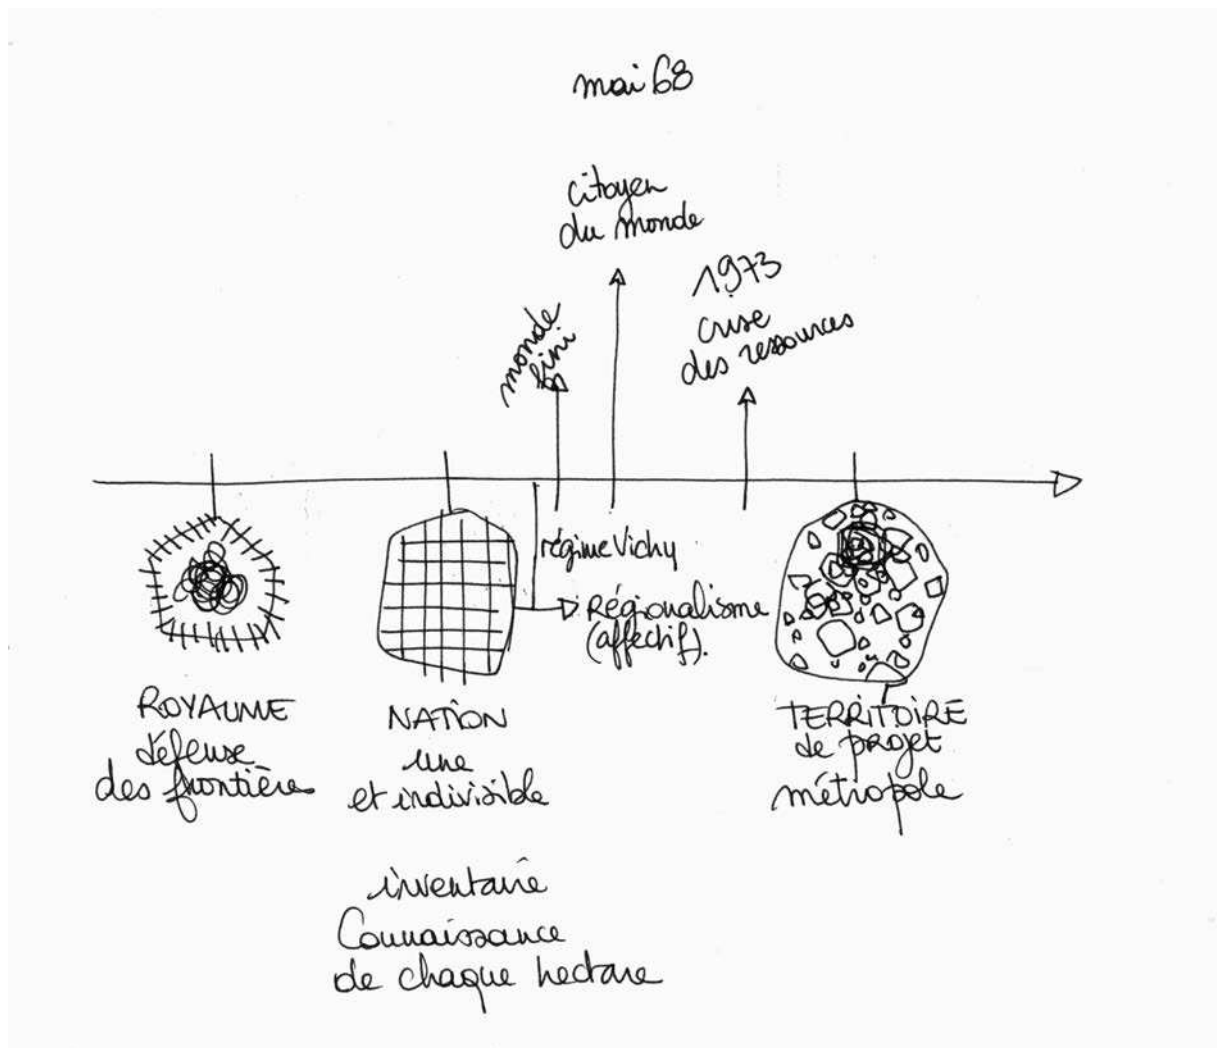 mai 68
citoyen
du monde
1973
crise
des ressources
monde
fini
régime Vichy
Régionalisme
(affectif).
ROYAUME
défense
des frontières
NATION
une
et indivisible
inventaire
Connaissance
de chaque hectare
TERRITOIRE
de projet
métropole